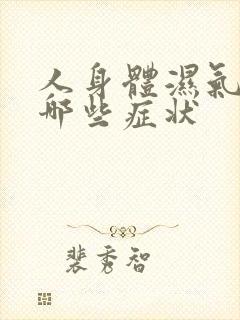 人身體濕氣
哪些症状
裴秀智